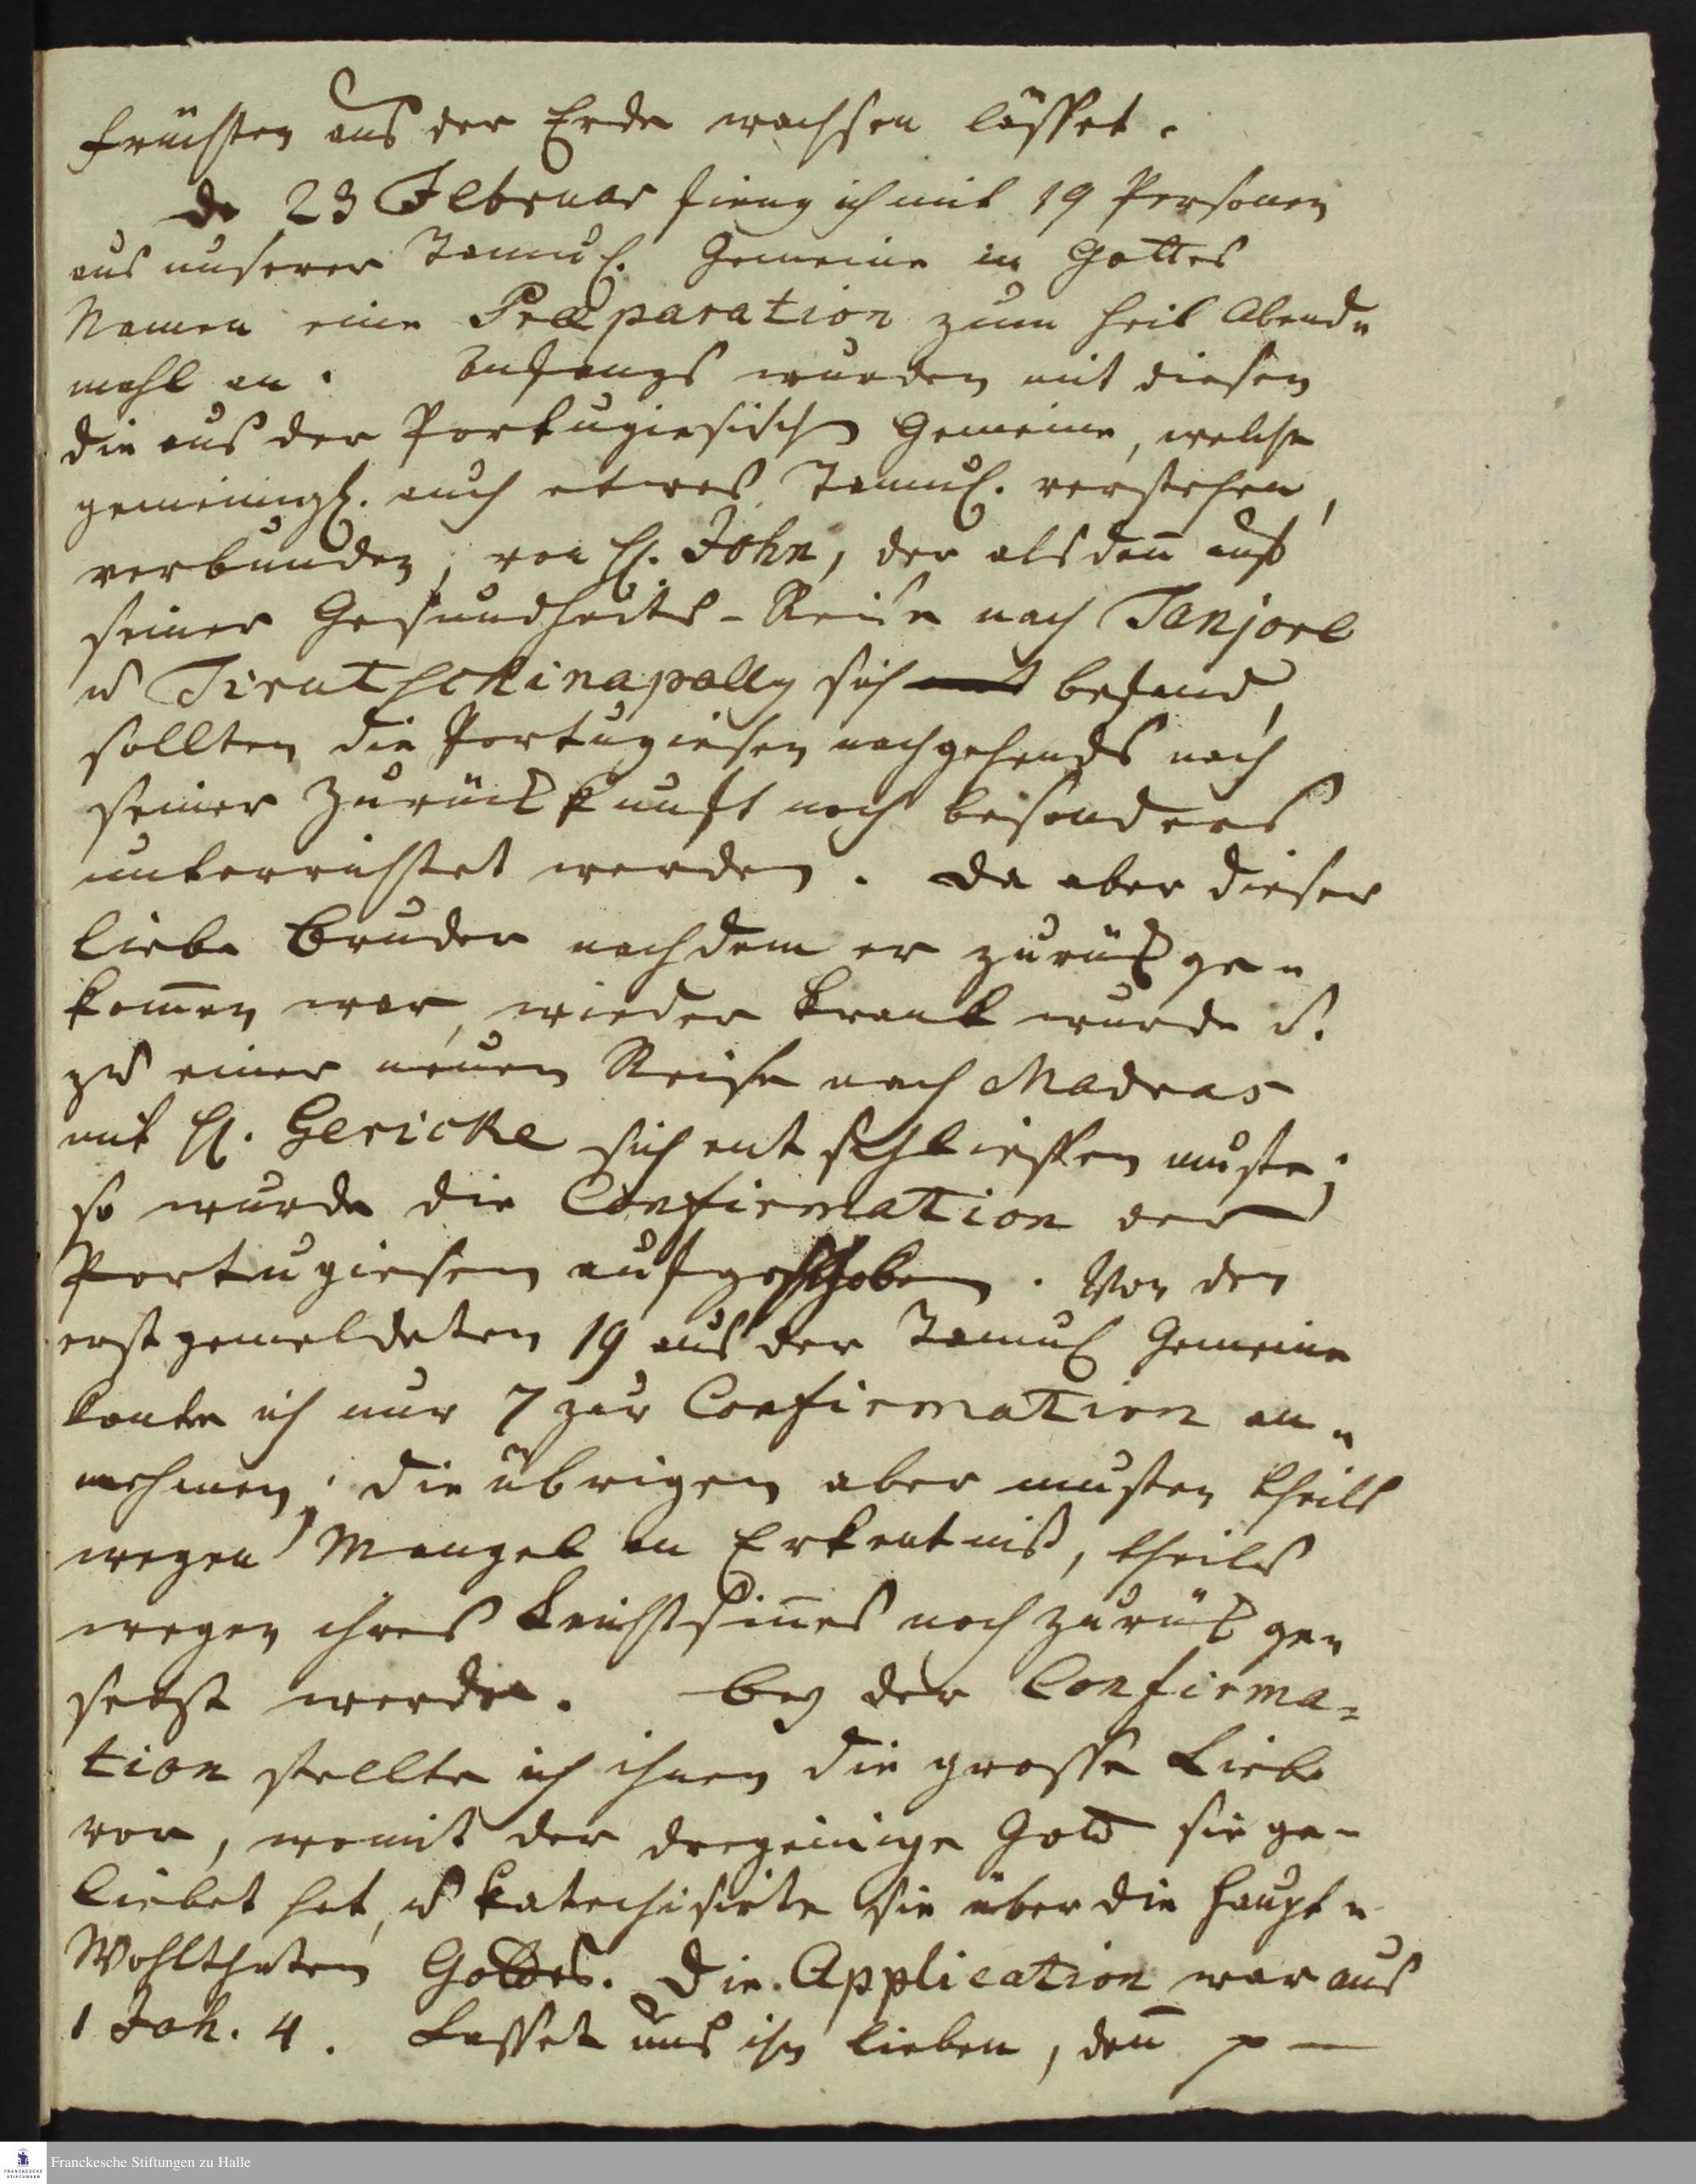 Früchten aus der Erde wachsen lässet.
De 23 Februar fieng ich mit 19 Personen
aus unserer Tamul. Gemeine in Gottes
Namen eine Præparation zum heil Abend-
mahl an. Anfangs wurden mit diesen
die aus der Portugiesisch Gemeine, welche
gemeinigl. auch etwas Tamul. verstehen,
verbunden, von H. John, der alsden̄ auf
seiner Gesundheits-Reise nach Tanjore
u Tirutschkinapally sich befand,
sollten die Portugiesen nachgehends nach
seiner Zurückkunft noch besonders
unterrichtet werden. Da aber dieser
liebe Bruder nachdem er zurück ge-
kom̄en war, wieder krank wurde u.
zu einer neuen Reise nach Madras
mit H. Gericke sich entschliessen muste;
so wurde die Confirmation der
Portugiesen aufgeschoben. Von den
erst gemeldeten 19 aus der Tamul Gemeine
konte ich nur 7 zur Confirmation an-
nehmen; die übrigen aber musten theils
wegen Mangel an Erkentniß, theils
wegen ihres Leichtsin̄es noch zurück ge-
setzt werden. Bey der Confirma=
tion stellte ich ihnen die grosse Liebe
vor, womit der dreyeinige Gott sie ge-
liebet hat, u katechisirte sie über die Haupt-
Wohlthaten Gottes. Die Application war aus
1 Joh. 4. Lasset uns ihn lieben, den̄ p —
Franckesche Stiftungen zu Halle